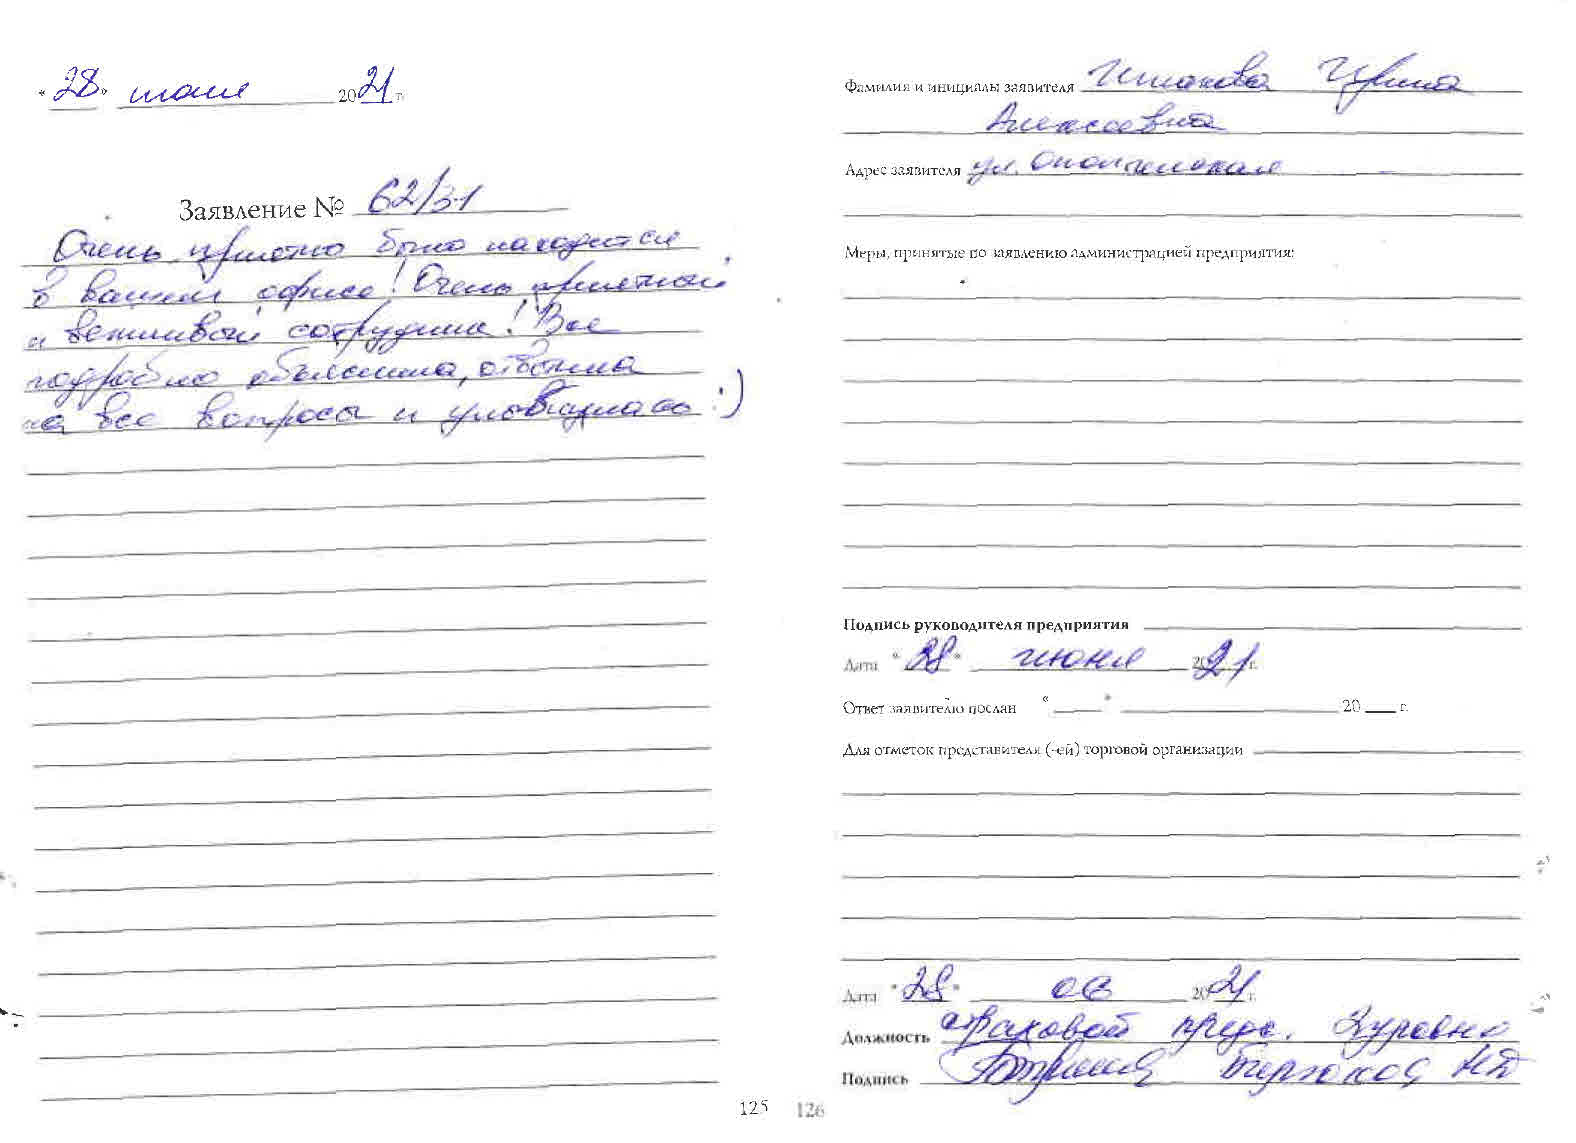 "28" июня 2021 г.
Заявление № 62/31
Очень приятно было находится
в вашем офисе! Очень приятной
и вежливой сотрудник! Все
подробно объяснила, ответила
на все вопросы и улыбнулась :)
125
Фамилия и инициалы заявителя Ирина
Алексеевна
Адрес заявителя ул. Ополченская
Меры, принятые по заявлению администрацией предприятия:
Подпись руководителя предприятия
Дата "28" июня 2021 г.
Ответ заявителю послан " " 20 г.
Для отметок представителя (-ей) торговой организации
Дата "28" 06 2021 г.
Должность страховой предс.
Подпись
126